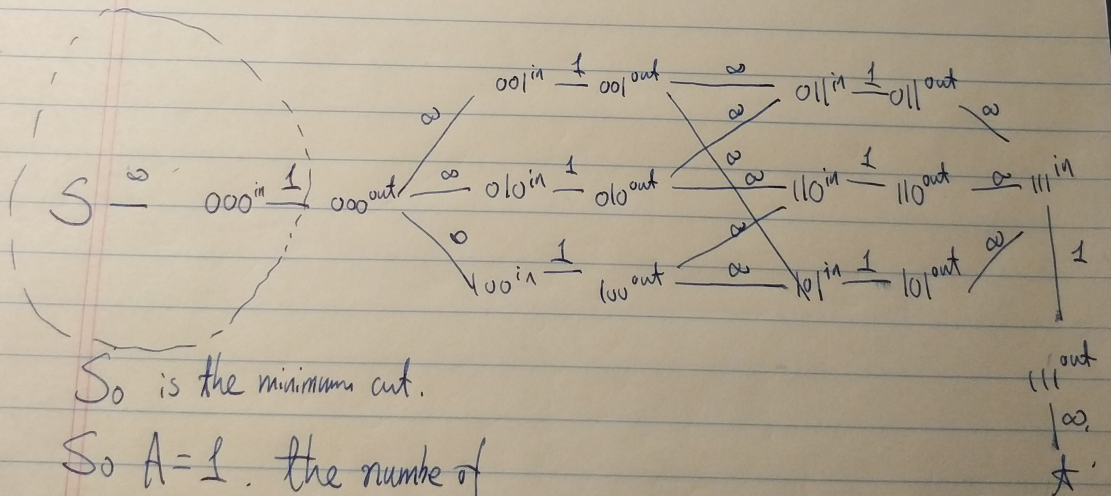 001ⁱⁿ 1 001ᵒᵘᵗ ∞ 011ⁱⁿ 1 011ᵒᵘᵗ ∞
∞ ∞
S ∞ 000ⁱⁿ 1 000ᵒᵘᵗ ∞ 010ⁱⁿ 1 010ᵒᵘᵗ ∞ ∞ 110ⁱⁿ 1 110ᵒᵘᵗ ∞ 111ⁱⁿ
∞ 100ⁱⁿ 1 100ᵒᵘᵗ ∞ ∞ 101ⁱⁿ 1 101ᵒᵘᵗ ∞ 1
So is the minimum cut. 111ᵒᵘᵗ
∞
So A=1. the numbe of t